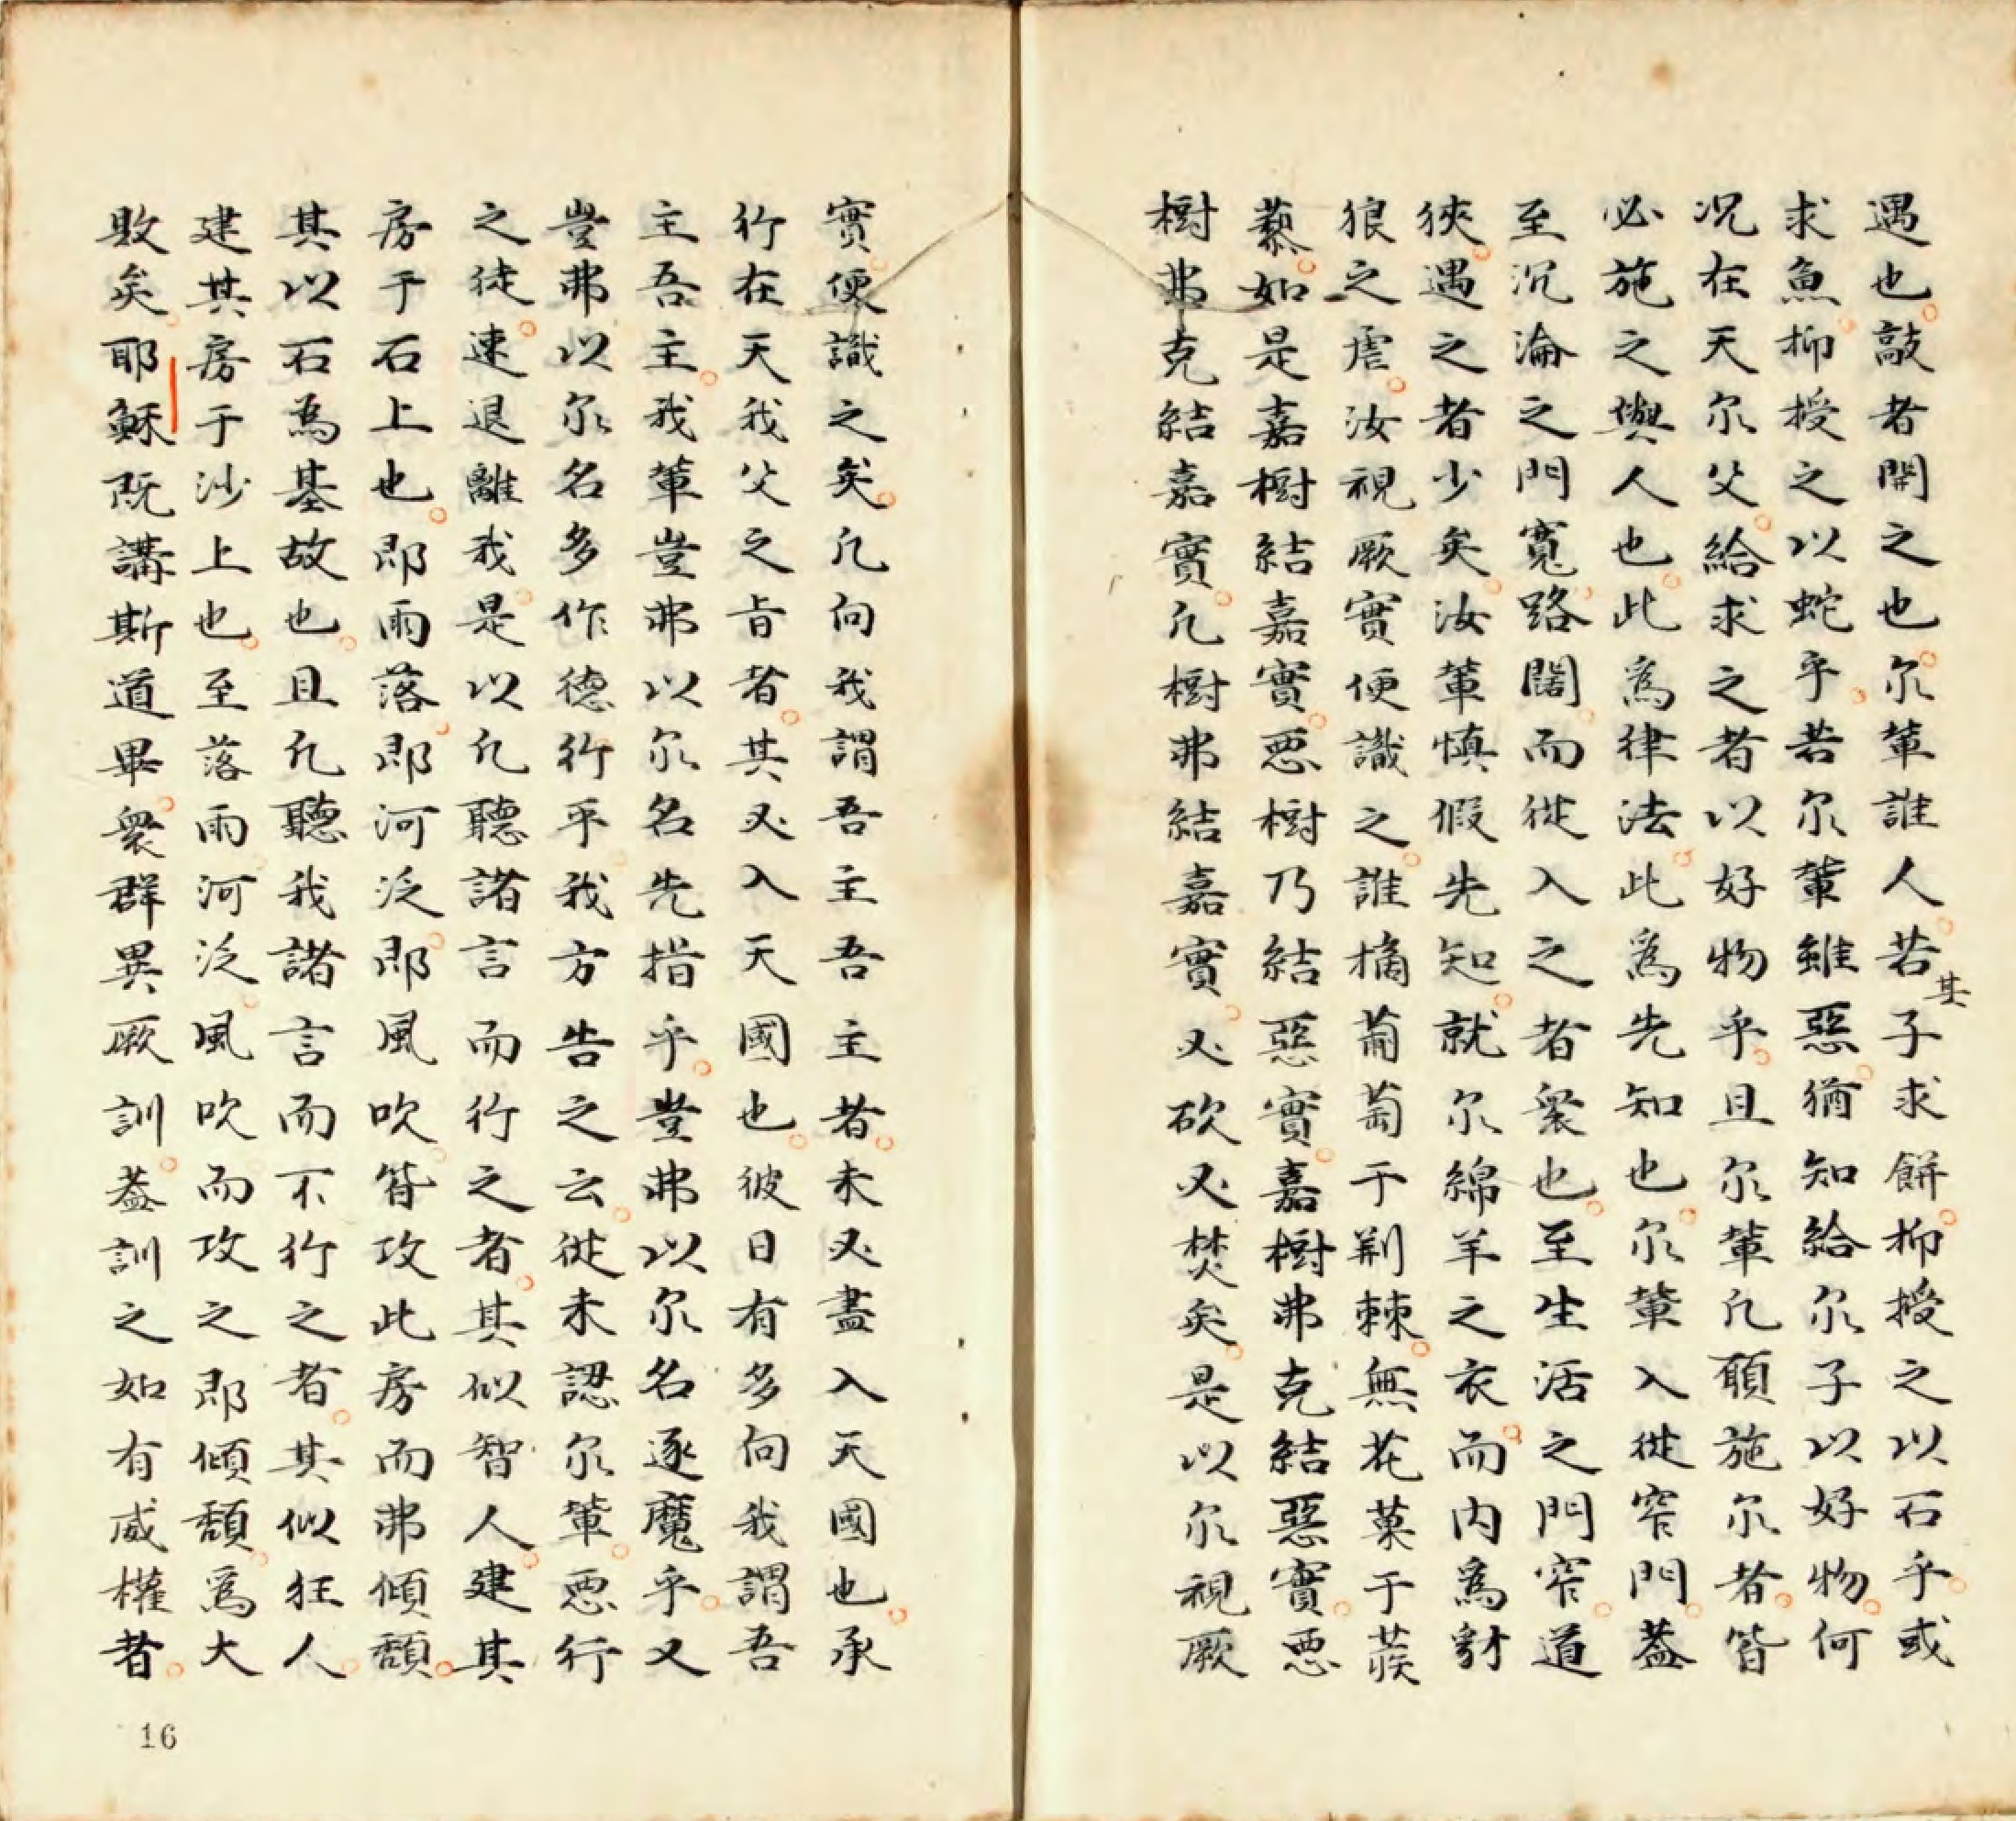 遇也敲者開之也尔輩誰人若其子求餅抑授之以石乎或
求魚抑授之以蛇乎若尔輩雖惡猶知給尔子以好物何
况在天尔父給求之者以好物乎且尔輩凢願施尔者皆
必施之與人也此為律法此為先知也尔輩入從窄門葢
至沉淪之門寬路闊而從入之者衆也至生活之門窄道
狹遇之者少矣汝輩慎假先知就尔綿羊之衣而內為豺
狼之虐汝視厥實便識之誰摘葡萄于荆棘無花菓于蒺
藜如是嘉樹結嘉實悪樹乃結惡實嘉樹弗克結惡實悪
樹弗克結嘉實凢樹弗結嘉實必砍必焚矣是以尔視厥
實便識之矣凢向我謂吾主吾主者未必盡入天國也承
行在天我父之旨者其必入天國也彼日有多向我謂吾
主吾主我輩豈弗以尔名先指乎豈弗以尔名逐魔乎又
豈弗以尔名多作德行乎我方告之云從未認尔輩悪行
之徒速退離我是以凢聽諸言而行之者其似智人建其
房于石上也即雨落即河泛即風吹皆攻此房而弗傾頽
其以石為基故也且凢聽我諸言而不行之者其似狂人
建其房于沙上也至落雨河泛風吹而攻之即傾頽為大
敗矣耶穌既講斯道畢衆群異厥訓葢訓之如有威權者
16